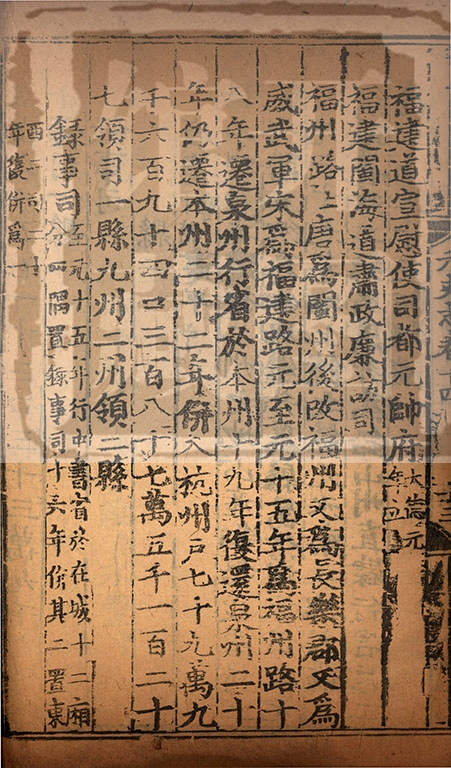 福建道宣慰使司都元帥府大德元年立
福建閩海道肅政廉訪司
福州路上唐爲閩州後改福州又爲長樂郡又爲
威武軍宋爲福建路元至元十五年爲福州路十
八年遷泉州行省於本州十九年復還泉州二十
年仍遷本州二十二年併入杭州户七十九萬九
千六百九十四口三百八十七萬五千一百二十
七領司一縣九州二州領二縣
録事司至元十五年行中書省於在城十二廂
分四隅置録事司十六年併其二置東
西二司二十
年復併爲一